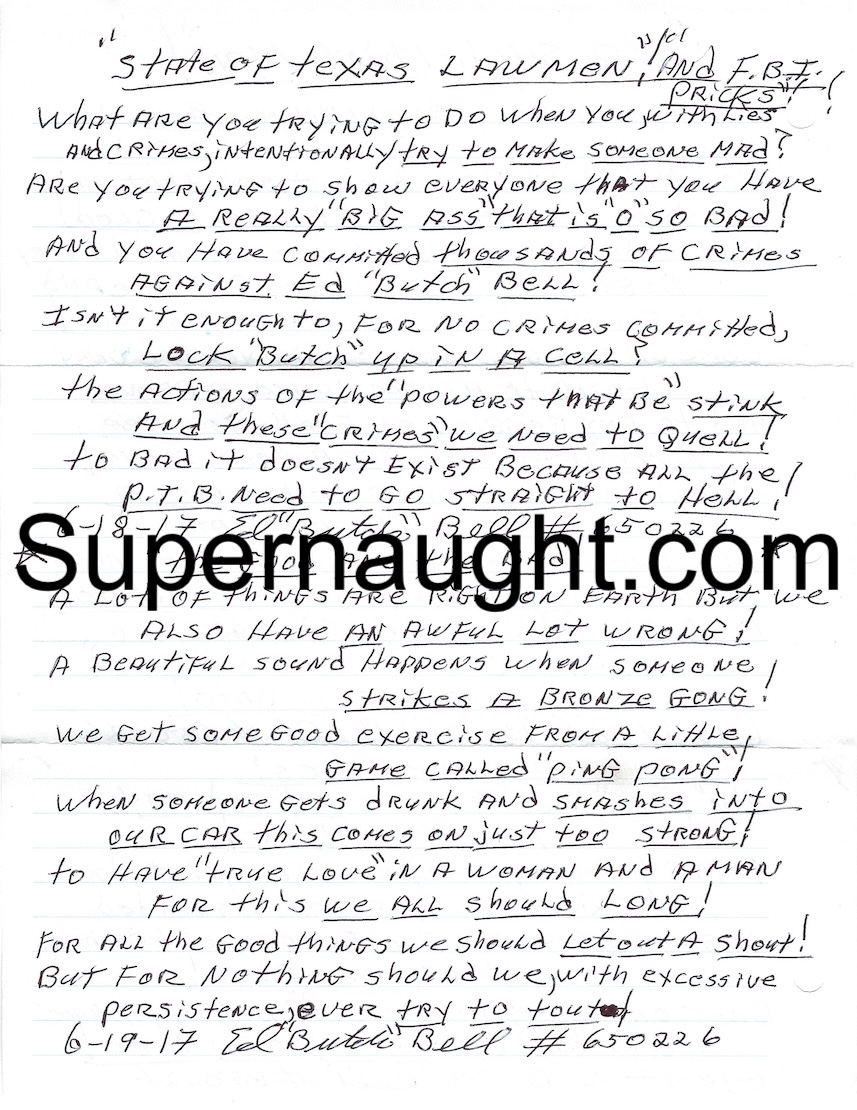 "State of Texas Lawmen," And F.B.I.
Pricks"!!
What are you trying to do when you, with lies
and crimes, intentionally try to make someone mad?
Are you trying to show everyone that you have
a really "big ass" that is "o" so bad!
And you have committed thousands of crimes
against Ed "Butch" Bell!
Isn't it enough to, for no crimes committed,
lock "Butch" up in a cell?
The actions of the "powers that be" stink
and these "crimes" we need to quell!
To bad it doesn't exist because all the
P.T.B. need to go straight to Hell!!
6-18-17 Ed "Butch" Bell # 650226
Supernaught.com
* The Good and the Bad *
A lot of things are right on Earth but we
also have an awful lot wrong!
A beautiful sound happens when someone
strikes a bronze gong!
We get some good exercise from a little,
game called "ping pong"!
When someone gets drunk and smashes into
our car this comes on just too strong!
To have "true love" in a woman and a man
for this we all should long!
For all the good things we should let out a shout!
But for nothing should we, with excessive
persistence, ever try to tout
6-19-17 Ed "Butch" Bell # 650226